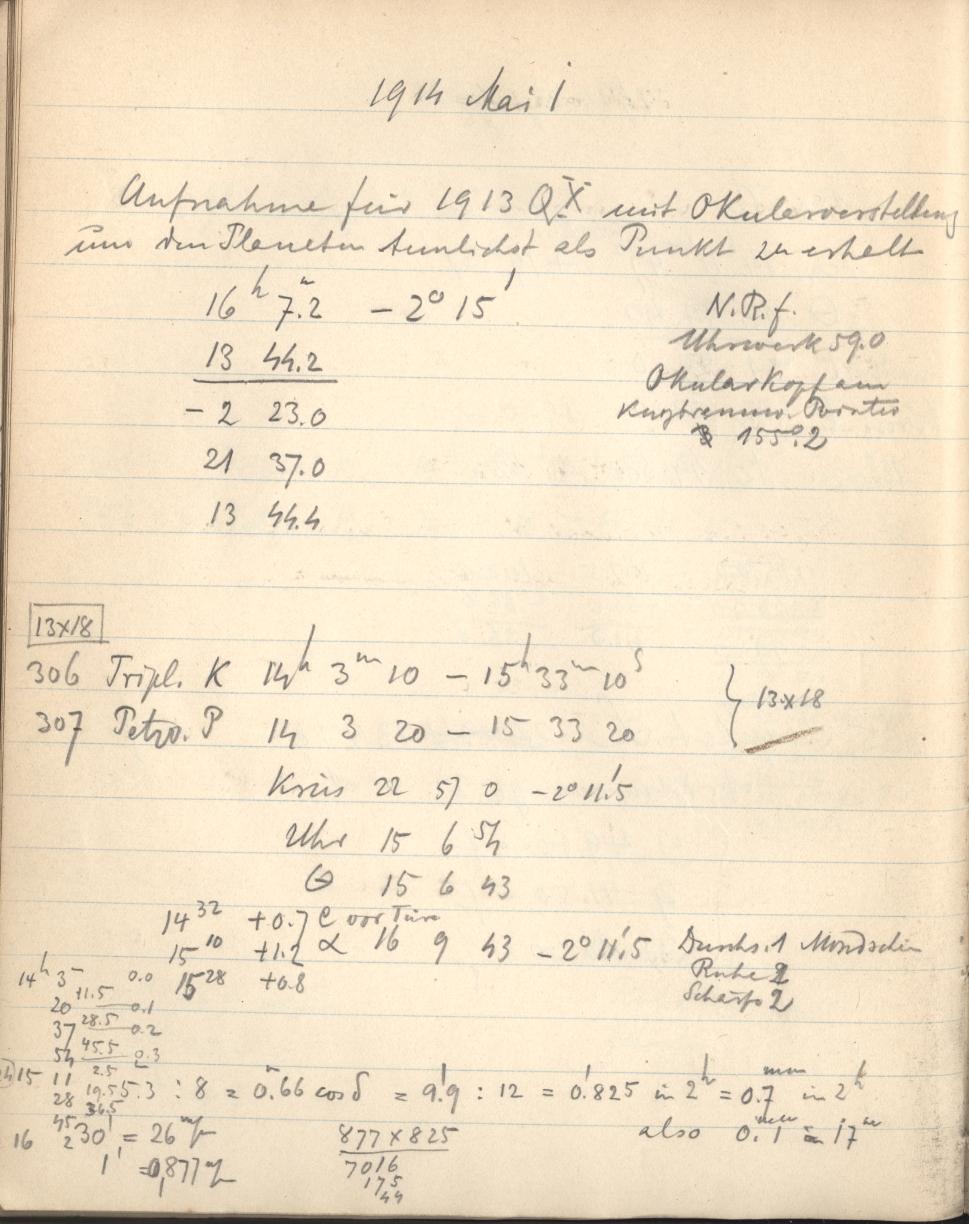 1914 Mai 1
Aufnahme für 1913 QX mit Okularverstellung
um den Planeten tunlichst als Punkt zu erhalt
16ʰ 7.ᵐ2 – 2° 15' N.P.f.
13 44.2 Uhrwerk 59.0
– 2 23.0 Okularkopf am
21 37.0 155°.2
13 44.4
13x18
306 Tripl. K 14ʰ 3ᵐ 10 – 15ʰ 33ᵐ 10ˢ
307 Petzv. P 14 3 20 – 15 33 20 } 13x18
Kreis 22 57 0 – 2° 11.'5
Uhr 15 6 54
θ 15 6 43
14³² +0.7 vor Türe
15¹⁰ +1.2 α 16 9 43 – 2° 11.'5 Durchs. 1 Mondschein
15²⁸ +0.8 Ruhe 2
Schärfe 2
14ʰ 3 0.0
+11.5
20 0.1
28.5
37 0.2
45.5
54 0.3
2.5
15 11
19.5
28
36.5
45
16 2
5.3 : 8 = 0.ᵐ66 cos δ = 9.'9 : 12 = 0.'825 in 2ʰ = 0.7ᵐᵐ in 2ʰ
30' = 26 877 x 825 also 0.1ᵐᵐ = 17ᵐ
1' = 0,877 7016
175
44